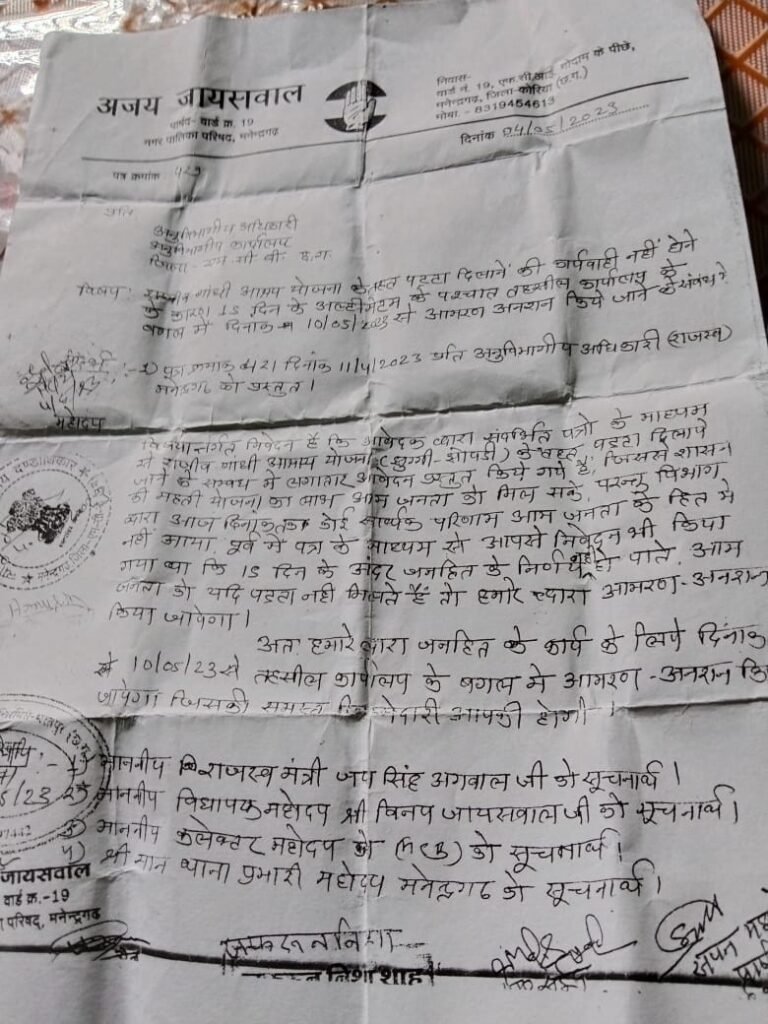 अजय जायसवाल
पार्षद- वार्ड क्र. 19
नगर पालिका परिषद, मनेन्द्रगढ़
निवास-
वार्ड नं. 19, एफ.सी.आई. गोदाम के पीछे,
मनेन्द्रगढ़, जिला-कोरिया (छ.ग.)
मोबा. - 8319454613
दिनांक 04/05/2023
पत्र क्रमांक 429
प्रति
अनुविभागीय अधिकारी
अनुविभागीय कार्यालय
जिला - एम सी बी छ.ग.
विषय: गांधी आश्रय योजना के तहत पट्टा दिलाने की कार्यवाही नहीं होने
के कारण 15 दिन के अल्टीमेटम के पश्चात तहसील कार्यालय के
बगल में दिनांक 10/05/2023 से आमरण अनशन किये जाने के संबंध में
:-1) पत्र क्रमांक 421 दिनांक 11/4/2023 प्रति अनुविभागीय अधिकारी (राजस्व)
मनेन्द्रगढ़ को प्रस्तुत।
महोदय
विषयान्तर्गत निवेदन है कि आवेदक द्वारा संदर्भित पत्रो के माध्यम
से राजीव गांधी आश्रय योजना (झुग्गी-झोपडी) के तहत पट्टा दिलाये
जाने के सम्बंध में लगातार आवेदन प्रस्तुत किये गये है, जिससे शासन
की महती योजना का लाभ आम जनता को मिल सके, परन्तु विभाग
द्वारा आज दिनांक तक कोई सार्थक परिणाम आम जनता के हित में
नहीं आया, पूर्व में पत्र के माध्यम से आपसे निवेदन भी किया
गया था कि 15 दिन के अंदर जनहित के निर्णय नहीं हो पाते, आम
जनता को यदि पट्टा नही मिलते हैं तो हमारे द्वारा आमरण-अनशन
किया जायेगा।
अतः हमारे द्वारा जनहित के कार्य के लिये दिनांक
से 10/05/23 से तहसील कार्यालय के बगल में आमरण-अनशन कि
जायेगा जिसकी समस्त जिम्मेदारी आपकी होगी।
1) माननीय राजस्व मंत्री जय सिंह अग्रवाल जी को सूचनार्थ।
2) माननीय विधायक महोदय श्री विनय जायसवाल जी को सूचनार्थ।
3) माननीय कलेक्टर महोदय को (MCB) को सूचनार्थ।
4) श्री मान थाना प्रभारी महोदय मनेन्द्रगढ़ को सूचनार्थ।
जायसवाल
वार्ड क्र.-19
परिषद, मनेन्द्रगढ़
निशा शाह